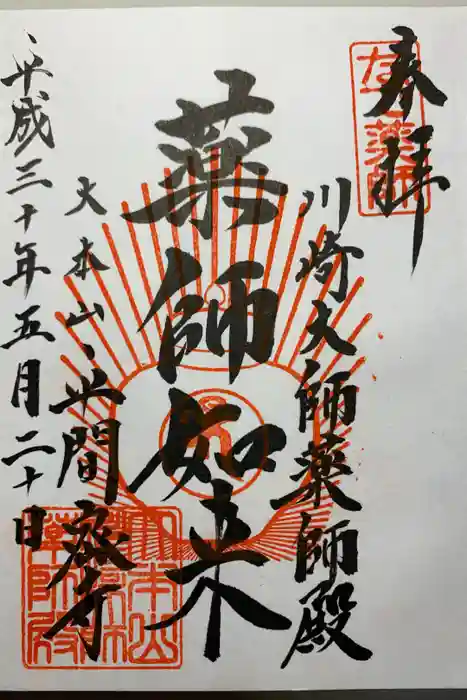 奉拝
川崎大師薬師殿
薬師如来
大本山
平間寺
平成三十年五月二十日
なで薬師